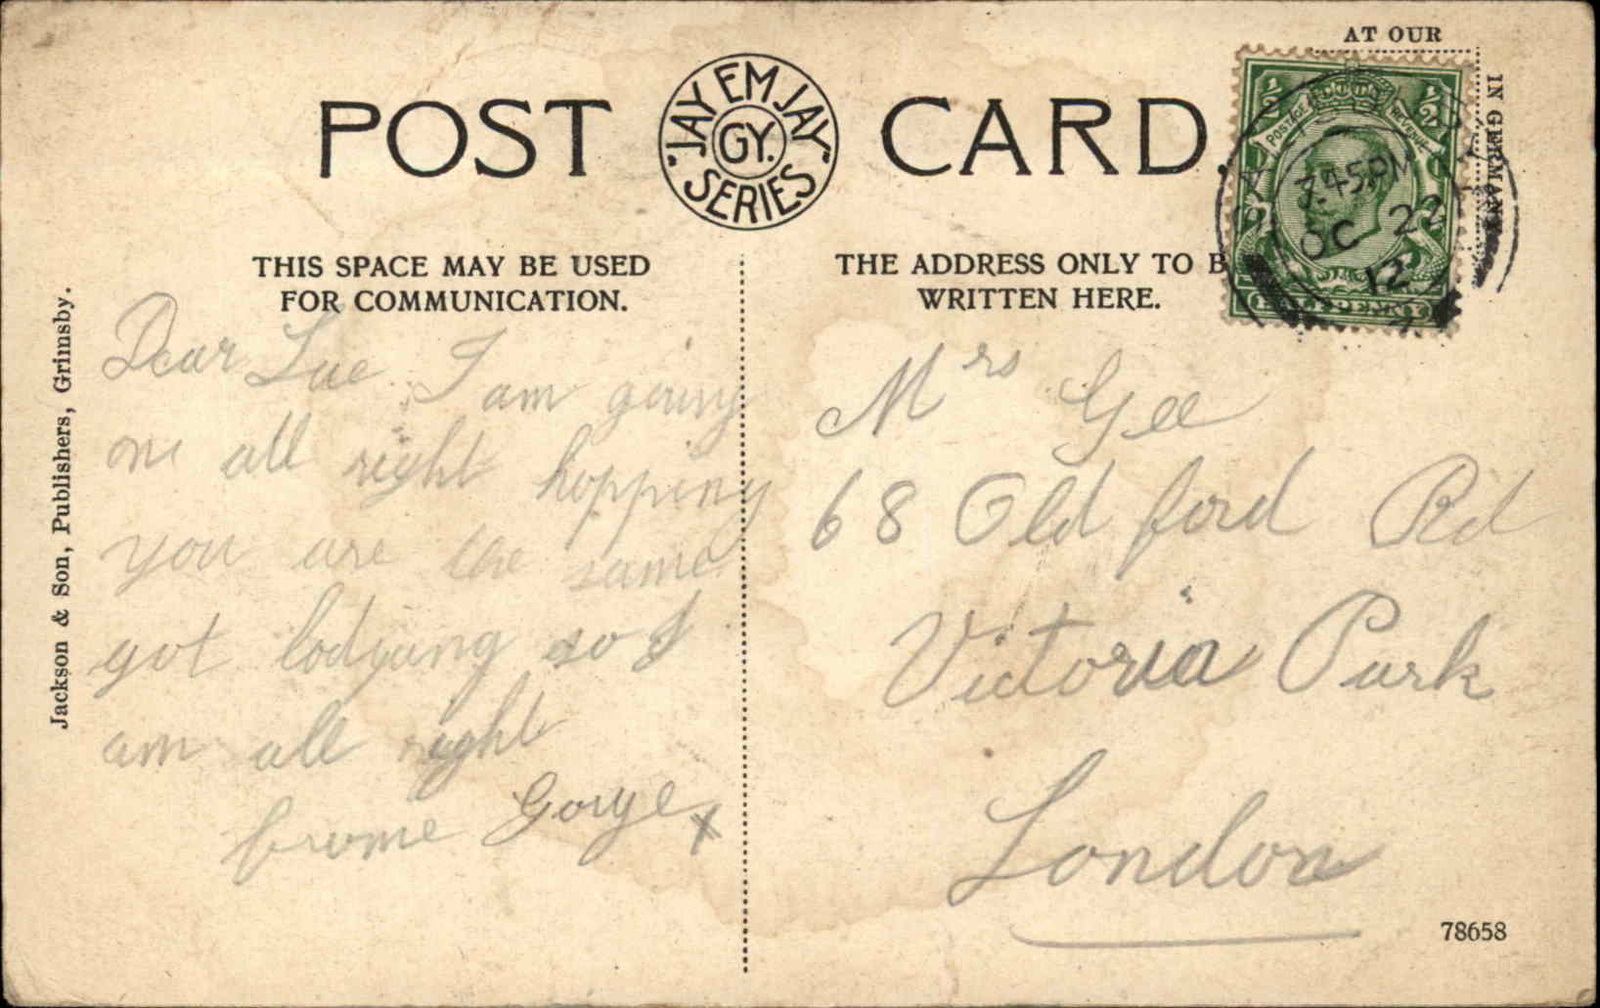 POST CARD.
"JAY EM JAY" SERIES
GY.
AT OUR
IN GERMANY
THIS SPACE MAY BE USED
FOR COMMUNICATION.
THE ADDRESS ONLY TO B
WRITTEN HERE.
½ ½
POSTAGE REVENUE
3.45PM
OC 22
12
Jackson & Son, Publishers, Grimsby.
Dear Sue I am going
on all right hopping
you are the same
got lodging so I
am all right
frome Gorge x
Mrs Gee
68 Old ford Rd
Victoria Park
London
78658